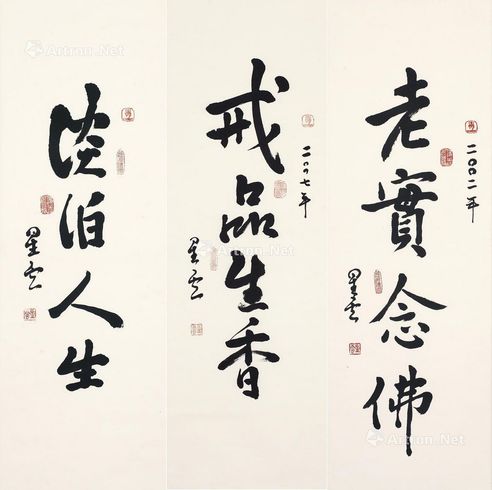 老實念佛
二〇〇二年
星雲
戒品生香
二〇〇七年
星雲
淡泊人生
星雲
Artron.Net
Artron.Net